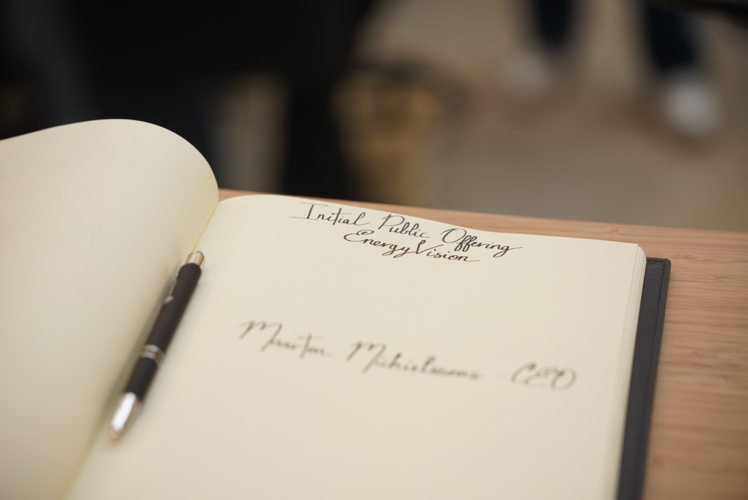 Initial Public Offering
EnergyVision
Maarten Michielssens - CEO